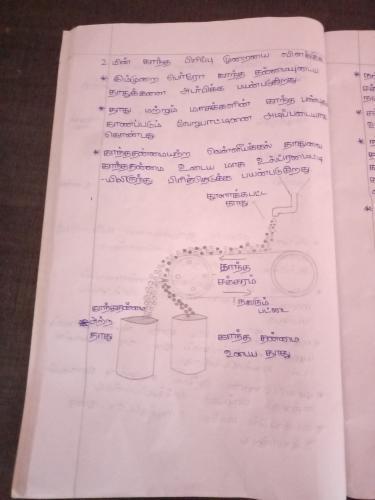 2. மின் காந்த பிரிப்பு முறையை விளக்குக
* இம்முறை பெர்ரோ காந்த தன்மையுடைய
தாதுக்களை அடர்பிக்க பயன்படுகிறது.
* தாது மற்றும் மாசுக்களின் காந்த பண்பு
காணப்படும் வேறுபாட்டினை அடிப்படையாக
கொண்டது
* காந்ததன்மையற்ற வெள்ளீயக்கல் தாதுவை
காந்ததன்மை உடைய மாசு உல்ப்ரமைட்டி
-யிலிருந்து பிரித்தெடுக்க பயன்படுகிறது
தூளாக்கபட்ட
தாது
காந்த
சக்கரம்
நகரும்
பட்டை
காந்ததன்மை
அற்ற
தாது
காந்த தன்மை
உடைய தாது